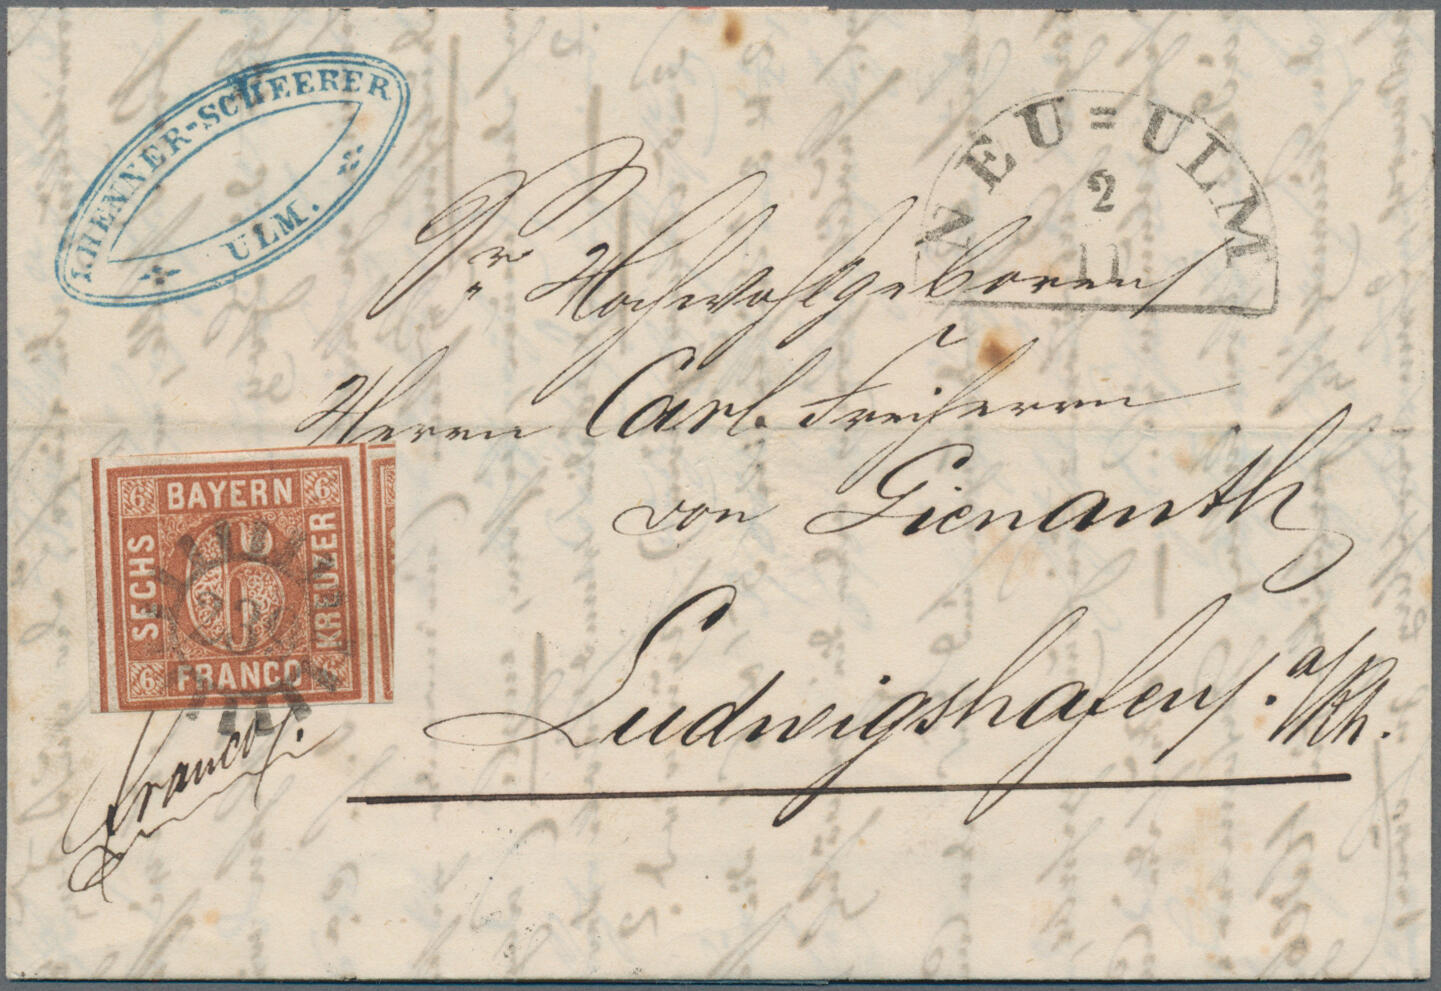 RHENNER-SCHEERER
ULM.
NEU=ULM
2
11
Sr Hochwohlgeboren
Herrn Carl Freiherrn
von Gienanth
Ludwigshafen a/Rh.
6 BAYERN 6
SECHS
6
KREUZER
6 FRANCO 6
franco.